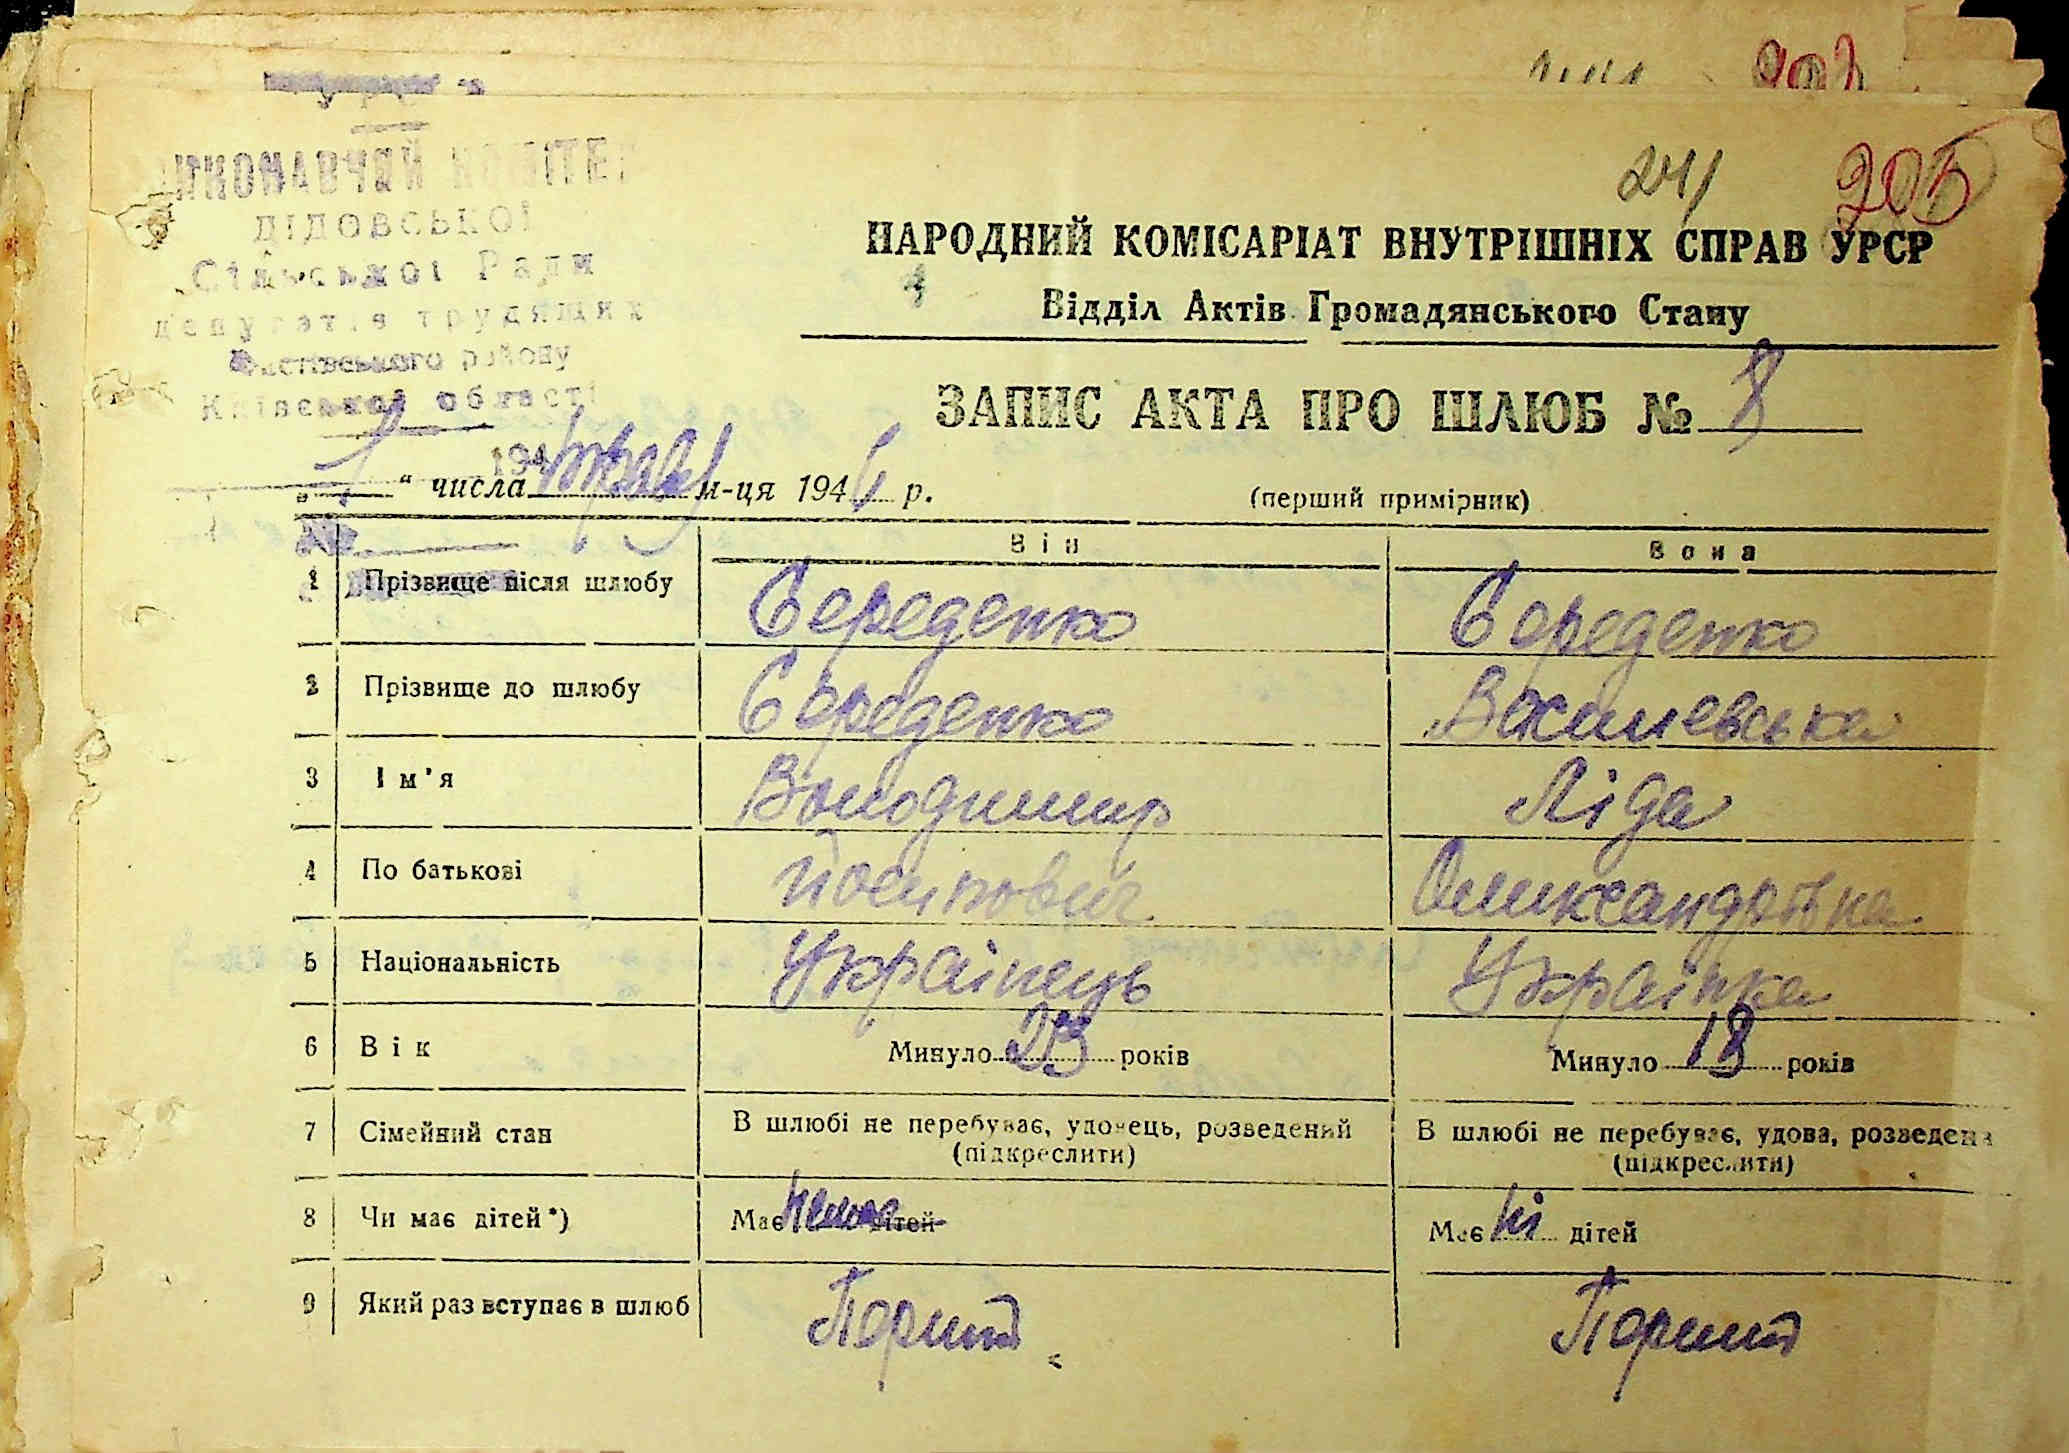 ВИКОНАВЧИЙ КОМІТЕТ
ДІДОВСЬКОЇ
Сільської Ради
депутатів трудящих
Фастівського району
Київської області
194
241 205
НАРОДНИЙ КОМІСАРІАТ ВНУТРІШНІХ СПРАВ УРСР
Відділ Актів Громадянського Стану
ЗАПИС АКТА ПРО ШЛЮБ № 8
„ 1 “ числа травн м-ця 194 р.
(перший примірник)
Він Вона
1 Прізвище після шлюбу Середенко Середенко
2 Прізвище до шлюбу Середенко Василевська
3 Ім'я Володимир Ліда
4 По батькові Йосипович Олександрівна
5 Національність Українець Українка
6 Вік Минуло 23 років Минуло 18 років
7 Сімейний стан В шлюбі не перебуває, удовець, розведений В шлюбі не перебуває, удова, розведена
(підкреслити) (підкреслити)
8 Чи має дітей*) Має нема дітей Має ні дітей
9 Який раз вступає в шлюб Перший Перший